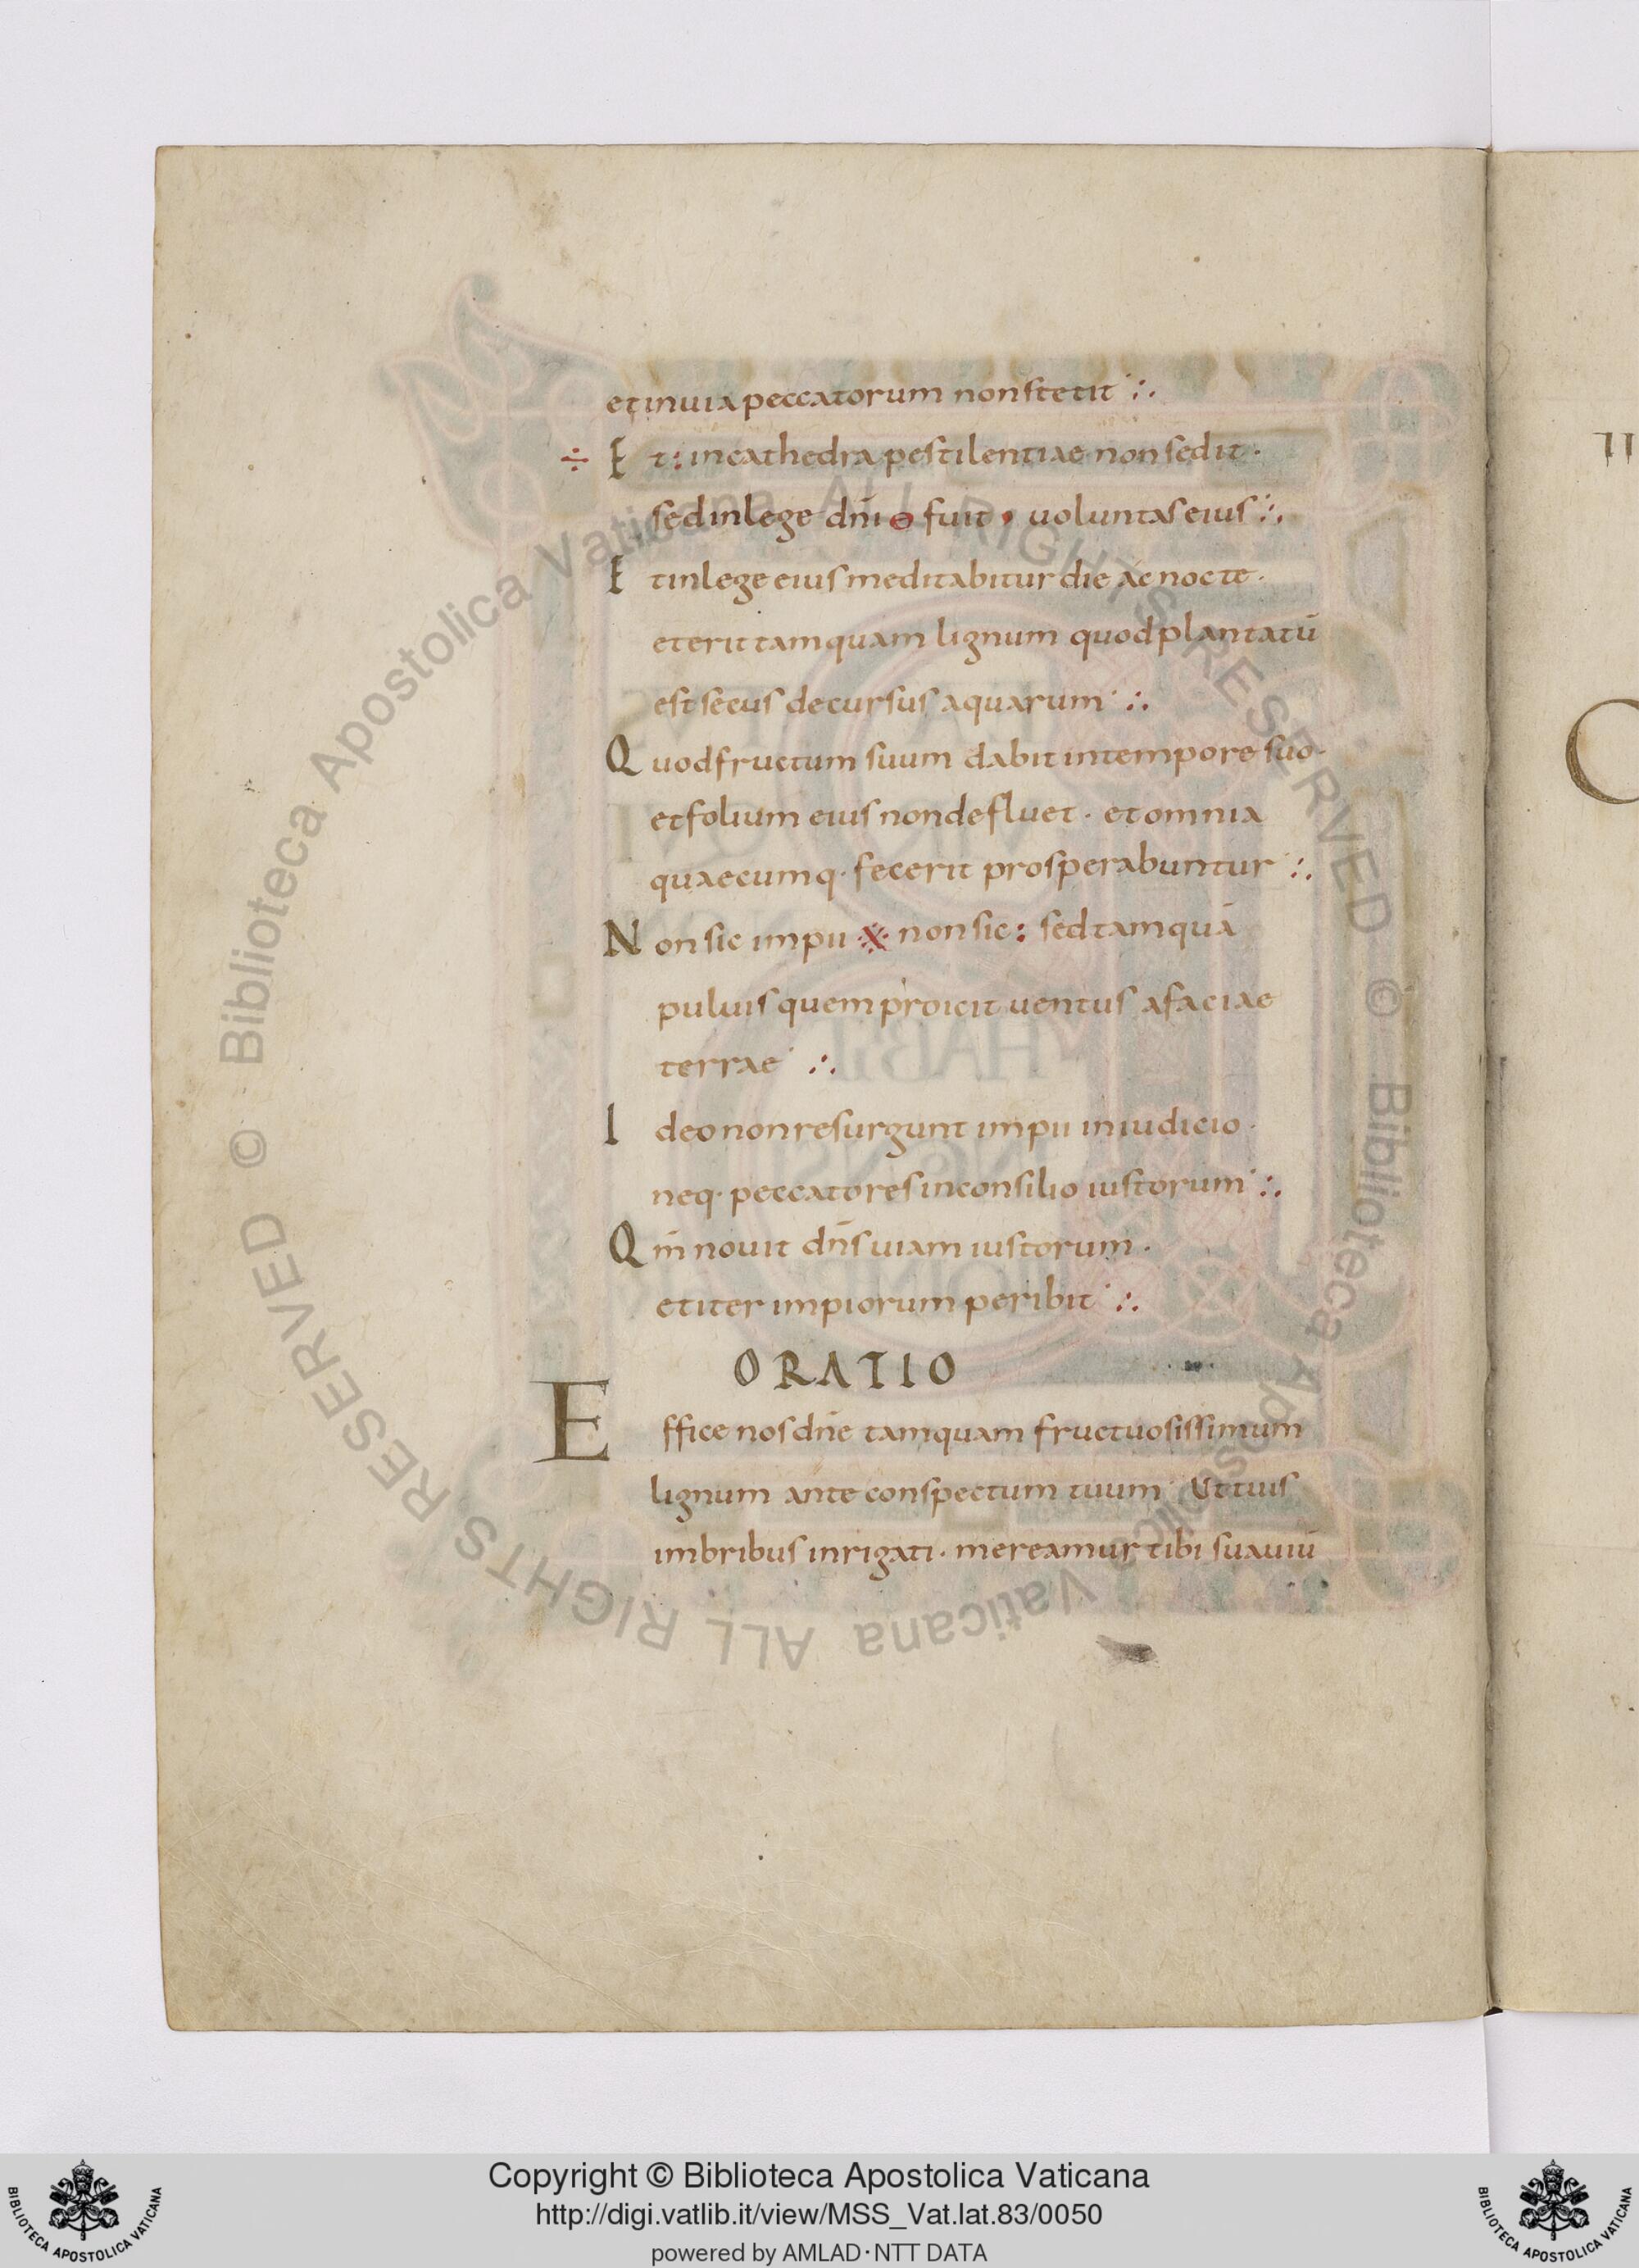 et in uia peccatorum non stetit ∴
÷ Et: in cathedra pestilentiae non sedit ·
sed in lege dn̄i ɵ fuit , uoluntas eius ∴
Et in lege eius meditabitur die ac nocte ·
et erit tamquam lignum quod plantatū
est secus decursus aquarum ∴
Quod fructum suum dabit in tempore suo ·
et folium eius non defluet · et omnia
quaecumq· fecerit prosperabuntur ∴
Non sic impii ※ non sic : sed tamquā
puluis quem proicit uentus a faciae
terrae ∴
Ideo non resurgunt impii in iudicio ·
neq· peccatores in consilio iustorum ∴
Qm̄ nouit dn̄s uiam iustorum ·
et iter impiorum peribit ∴
ORATIO
Effice nos dn̄e tamquam fructuosissimum
lignum ante conspectum tuum · Ut tuis
imbribus inrigati · mereamur tibi suauiū
Copyright © Biblioteca Apostolica Vaticana
http://digi.vatlib.it/view/MSS_Vat.lat.83/0050
powered by AMLAD·NTT DATA
BIBLIOTECA APOSTOLICA VATICANA
BIBLIOTECA APOSTOLICA VATICANA
© Biblioteca Apostolica Vaticana ALL RIGHTS RESERVED
© Biblioteca Apostolica Vaticana ALL RIGHTS RESERVED